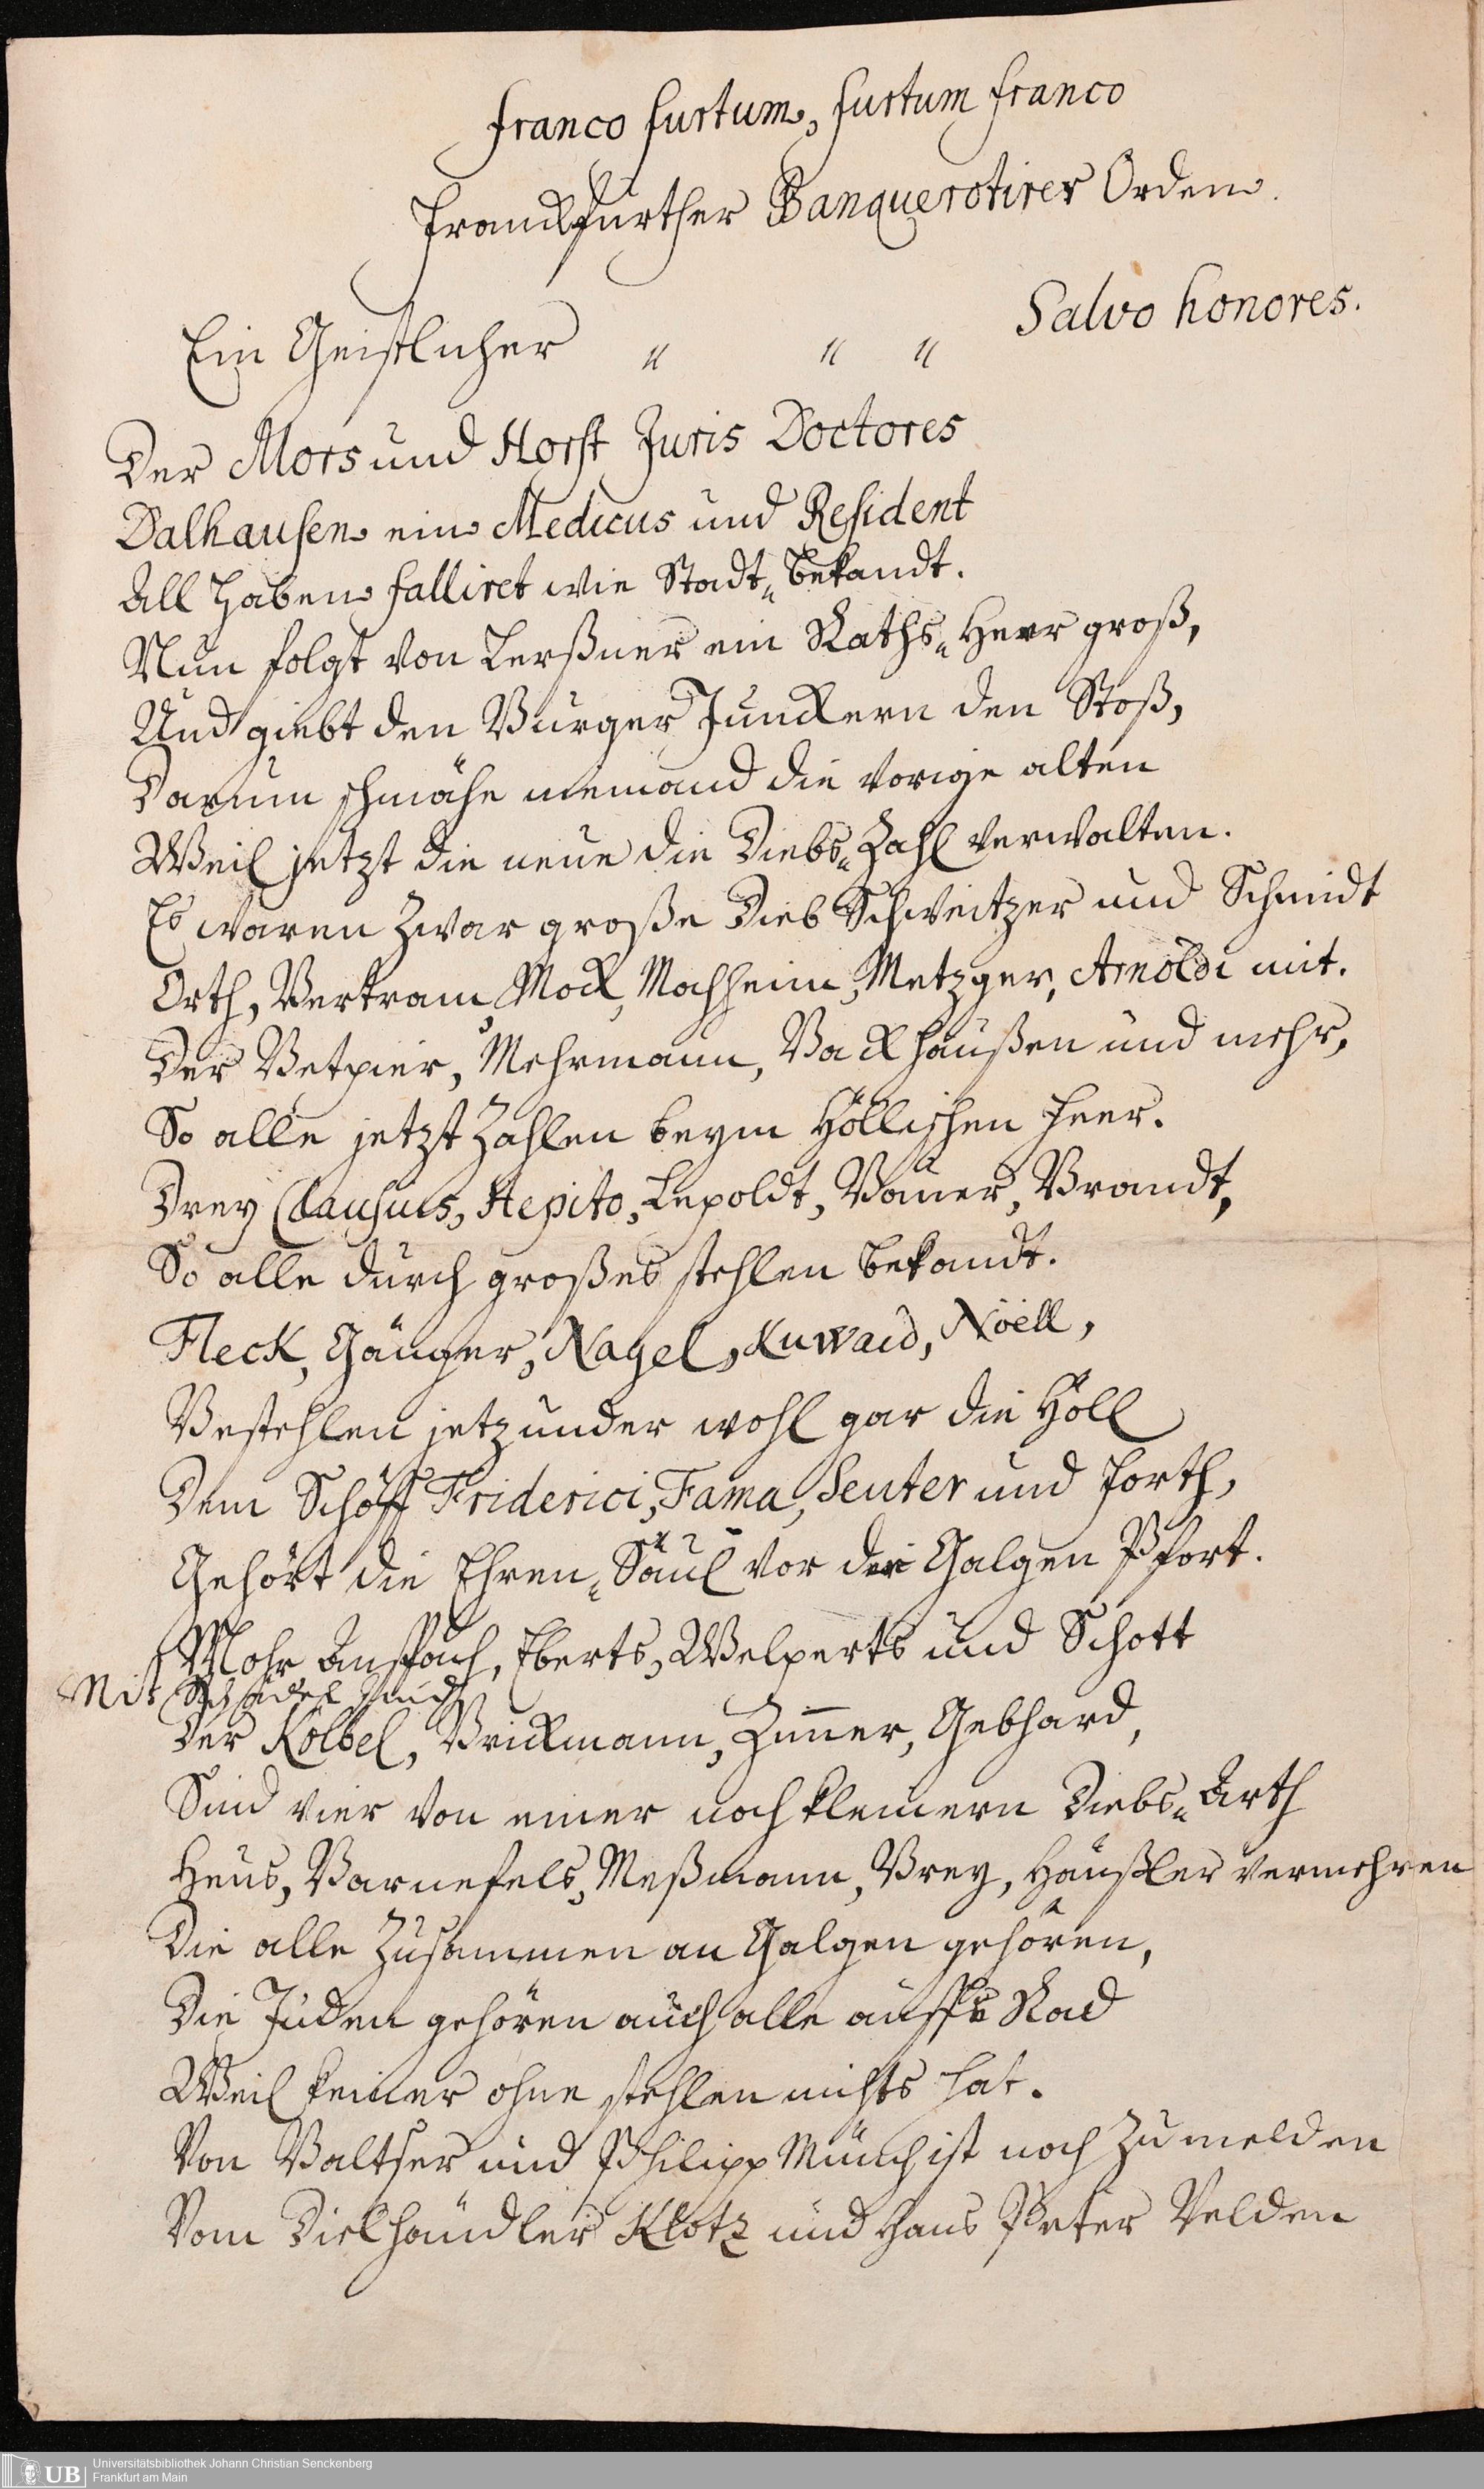 Franco furtum, furtum franco
Franckfurther Banquerotirer Orden.
Salvo honores.
Ein Geistlicher " " "
Der Mors und Horst Juris Doctores
Dalhausen ein Medicus und Resident
All haben falliret wie Stadt-bekandt.
Nun folgt von Lerßner ein Raths-Herr groß,
Und giebt den Burger Junckern den Stoß,
Darum schmähe niemand die vorige alten
Weil jetzt die neue die Diebs-Zahl verwalten.
Es waren zwar große Dieb Schweitzer und Schmidt
Orth, Bertram, Mock, Mochheim, Metzger, Arnoldi mit.
Der Betpier, Mehrmann, Backhaußen und mehr,
So alle jetzt zahlen beym Höllischen Heer.
Drey Clausius, Hepito, Lepoldt, Bauer, Brandt,
So alle durch großes stehlen bekandt.
Fleck, Gänger, Nagel, Kuwaid, Noëll,
Bestehlen jetzunder wohl gar die Höll
Dem Schöff Friderici, Fama, Seuter und Forth,
Gehört die Ehren-Säul vor der Galgen Pfort.
Mohr Anspach, Eberts, Welperts und Schott
Mit
Der Kolbel, Brickmann, Zimmer, Gebhard,
Sind vier von einer noch kleinern Diebs-Arth
Heus, Barnefels, Meßmann, Brey, Häußler vermehren
Die alle zusammen an Galgen gehören,
Die Juden gehören auch alle auffs Rad
Weil keiner ohne stehlen nichts hat.
Von Baltser und Philipp Münch ist noch zu melden
Vom Dielhändler Klotz und Hans Peter Velden
UB Universitätsbibliothek Johann Christian Senckenberg
Frankfurt am Main